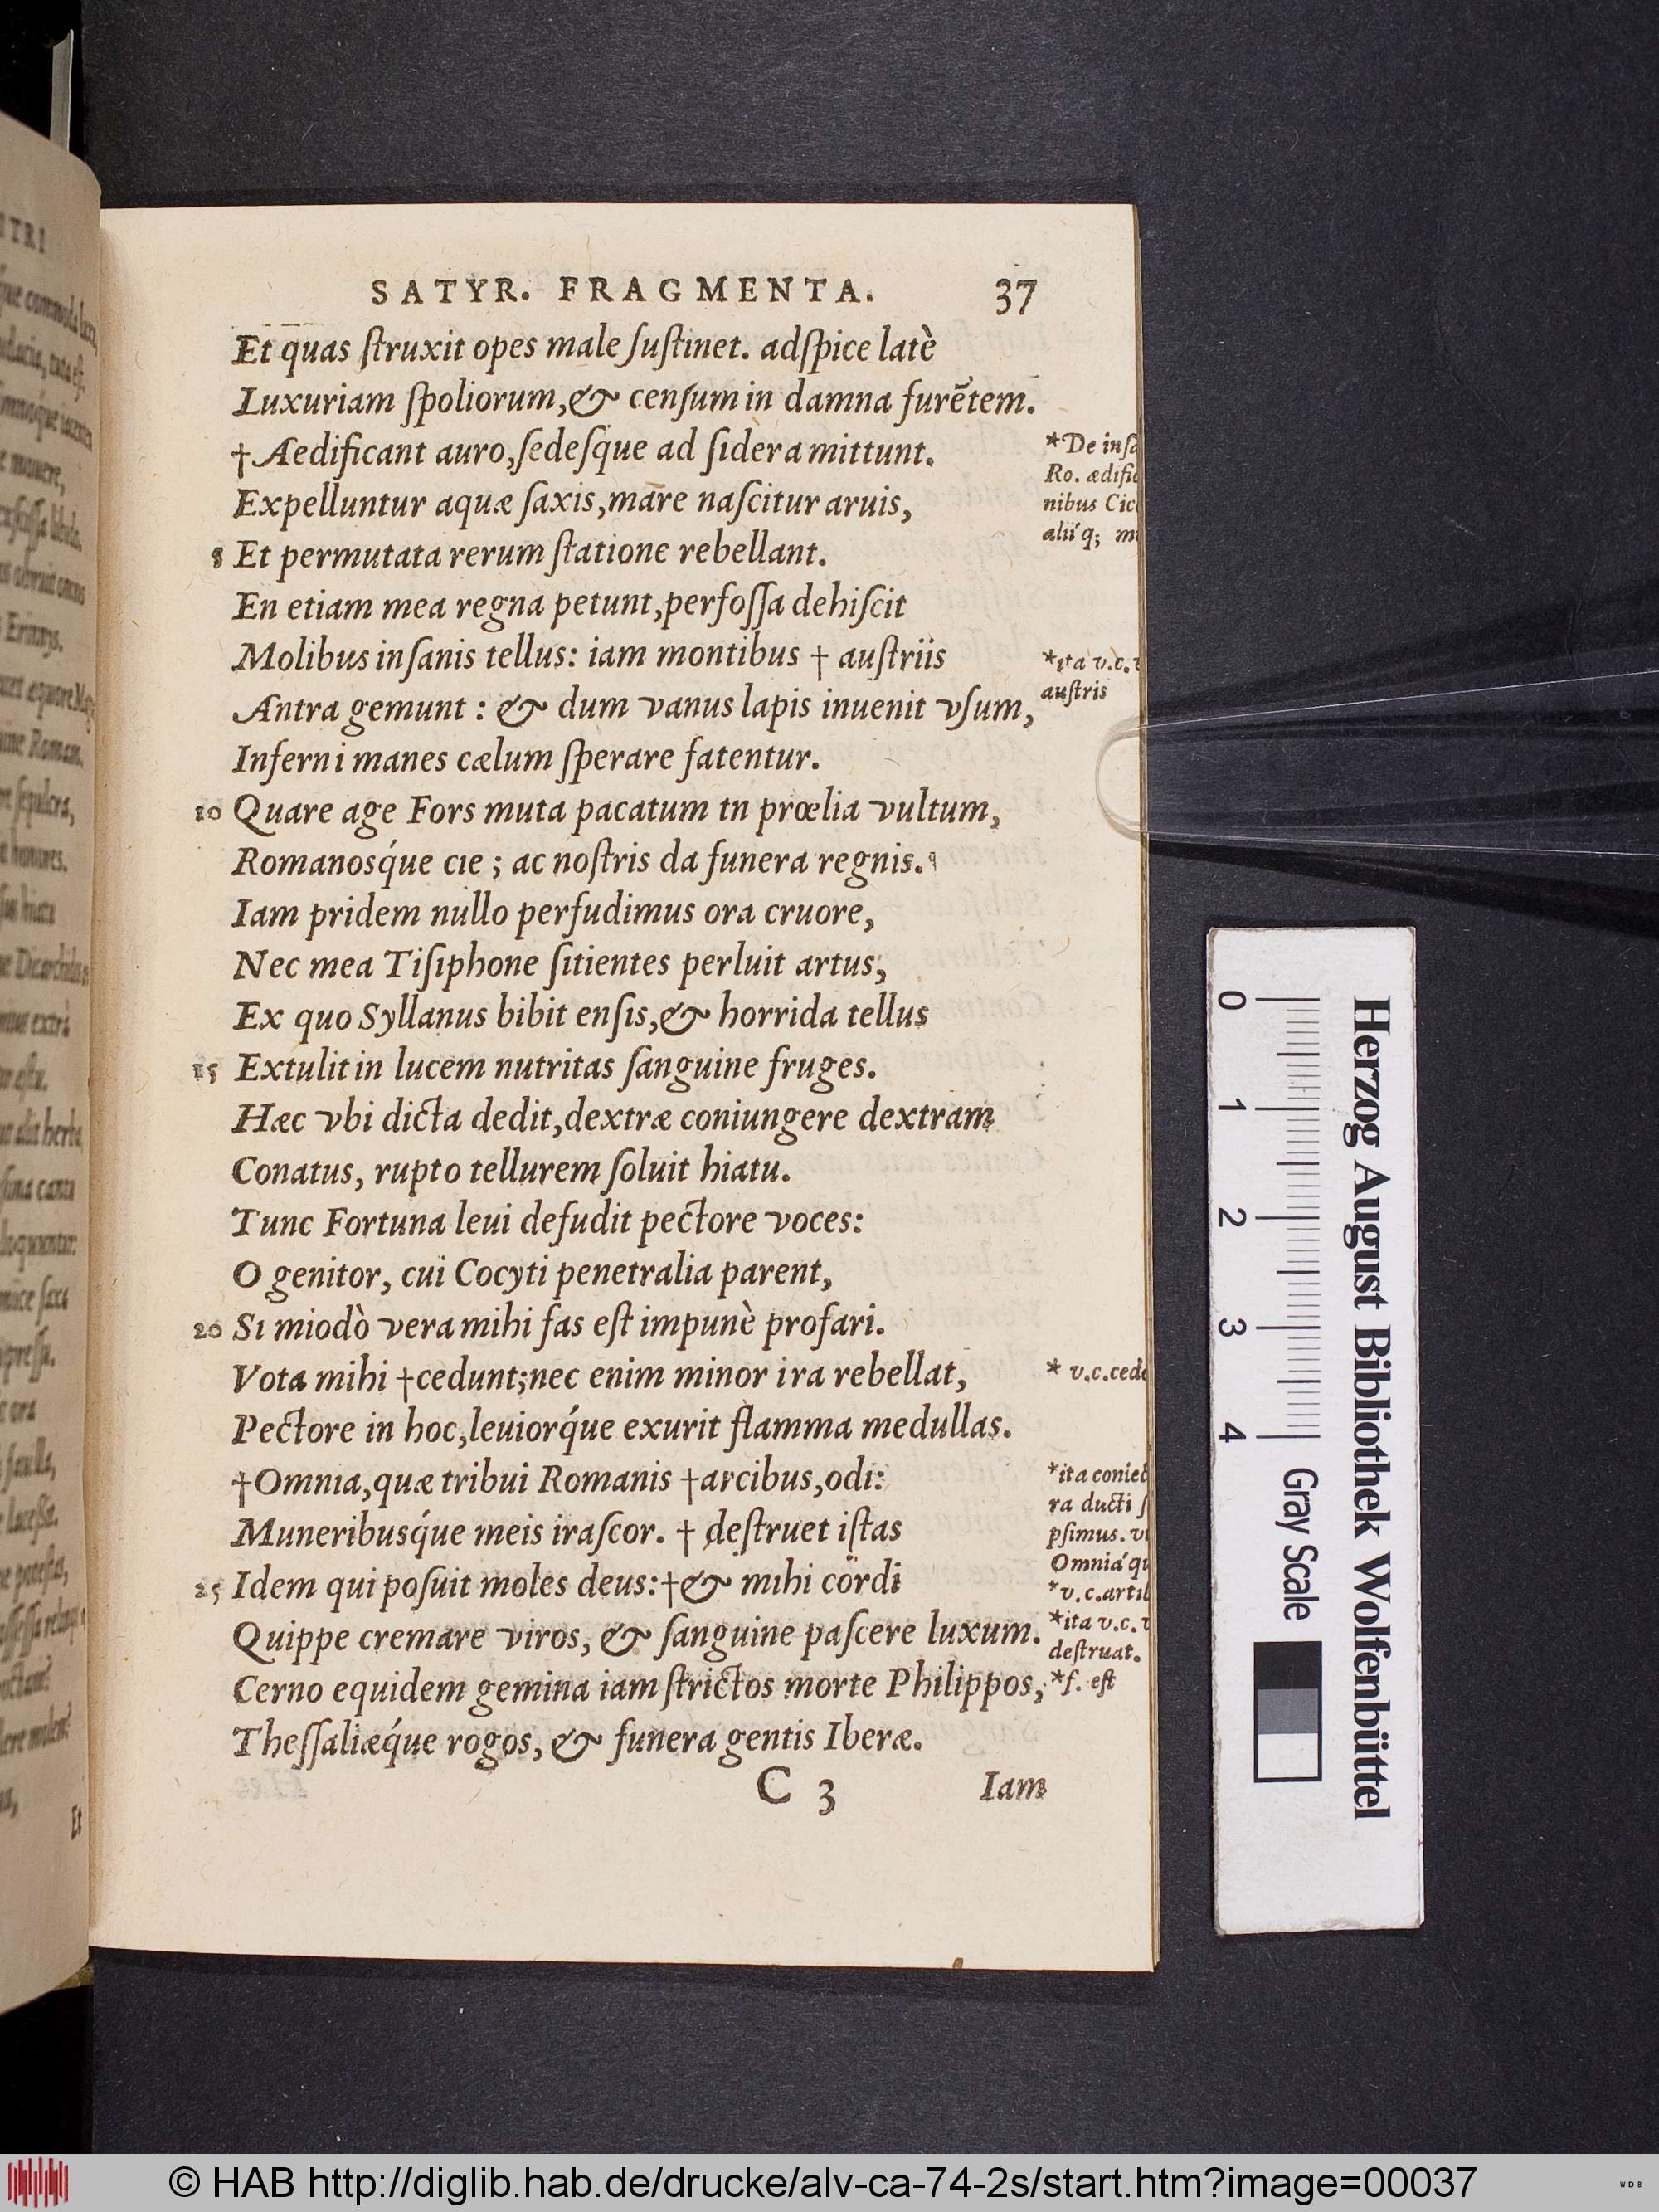 SATYR. FRAGMENTA. 37
Et quas ſtruxit opes male ſuſtinet. adſpice latè
Luxuriam ſpoliorum,& cenſum in damna furētem.
†Ædificant auro,ſedeſque ad ſidera mittunt.
Expelluntur aquæ ſaxis,mare naſcitur aruis,
8 Et permutata rerum ſtatione rebellant.
En etiam mea regna petunt,perfoſſa dehiſcit
Molibus inſanis tellus: iam montibus † auſtriis
Antra gemunt : & dum vanus lapis inuenit vſum,
Inferni manes cælum ſperare fatentur.
10 Quare age Fors muta pacatum in prœlia vultum,
Romanosq́ue cie ; ac noſtris da funera regnis.
Iam pridem nullo perfudimus ora cruore,
Nec mea Tiſiphone ſitientes perluit artus,
Ex quo Syllanus bibit enſis,& horrida tellus
15 Extulit in lucem nutritas ſanguine fruges.
Hæc vbi dicta dedit,dextræ coniungere dextram
Conatus, rupto tellurem ſoluit hiatu.
Tunc Fortuna leui defudit pectore voces:
O genitor, cui Cocyti penetralia parent,
20 Si miodò vera mihi fas eſt impunè profari.
Vota mihi †cedunt;nec enim minor ira rebellat,
Pectore in hoc,leuiorq́ue exurit flamma medullas.
†Omnia,quæ tribui Romanis †arcibus,odi:
Muneribusq́ue meis iraſcor. † deſtruet iſtas
25 Idem qui poſuit moles deus:†& mihi cordi
Quippe cremare viros, & ſanguine paſcere luxum.
Cerno equidem gemina iam ſtrictos morte Philippos,
Theſſaliæq́ue rogos, & funera gentis Iberæ.
C 3 Iam
*De inſa
Ro. ædifi
nibus Cic
alii q́;
*ita v.c.
auſtris
* v.c.ced
*ita coniec
ra ducti ſ
pſimus.
Omnia
*v.c.
*ita v.c.
deſtruat.
*f. eſt
Herzog August Bibliothek Wolfenbüttel
0 1 2 3 4 Gray Scale
© HAB http://diglib.hab.de/drucke/alv-ca-74-2s/start.htm?image=00037